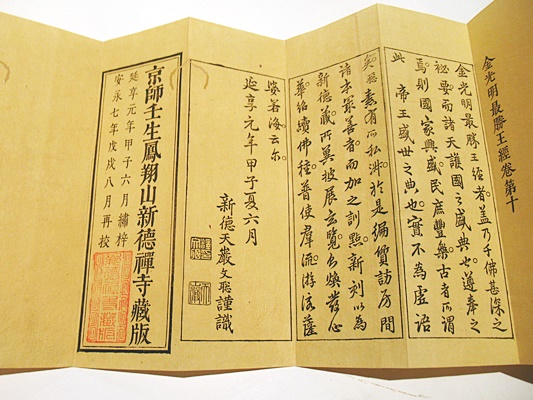 金光明最勝王經卷第十
金光明最勝王經者蓋乃千佛甚深之
祕要而諸天護國之盛典也遵奉之
焉則國家興盛民庶豐樂古者所謂
此 帝王盛世之典也實不為虛語
矣 素有所私 於是徧質訪房間
諸本最善者而加之訓點新刻以為
新德藏所冀披展玄覽 煥發心
華紹續佛種普使羣流游泳薩
婆若海云尒
延享元年甲子夏六月
新德天巖文聡謹識
京師壬生鳳翔山新德禪寺藏版
延享元年甲子六月繡梓
安永七年戊戌八月再校